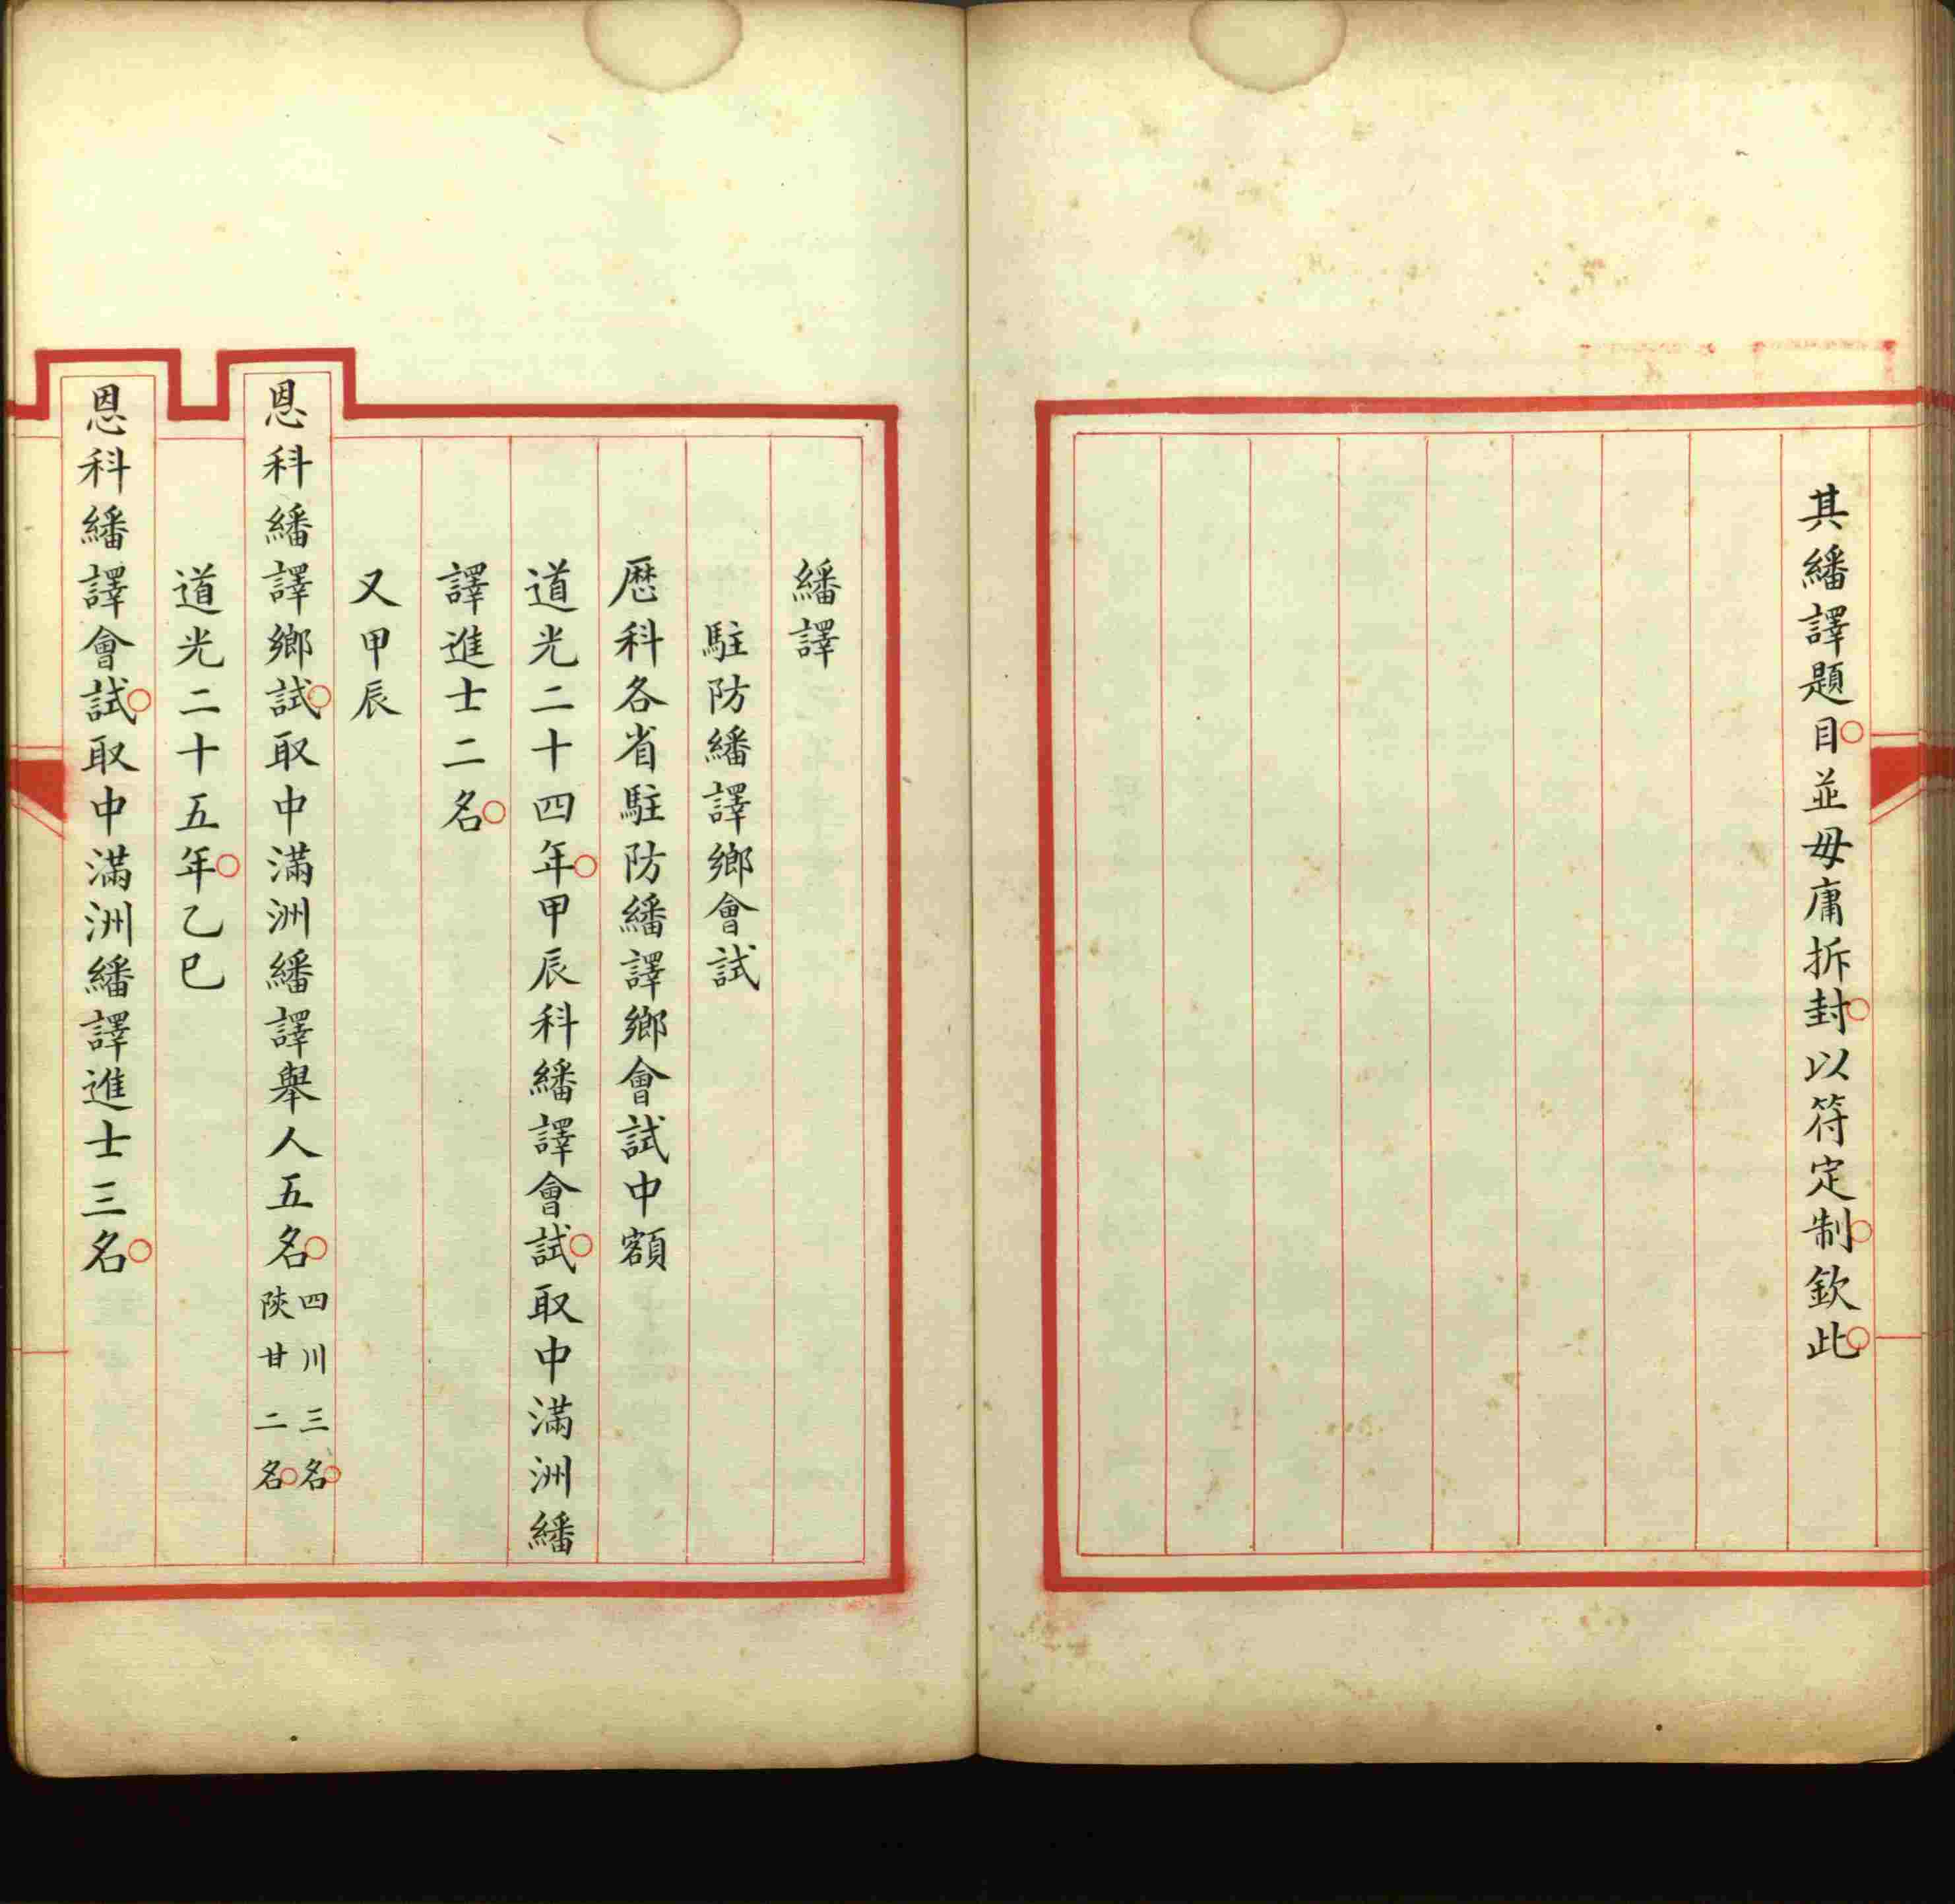 其繙譯題目並毋庸拆封以符定制欽此
繙譯
駐防繙譯鄉會試
歴科各省駐防繙譯鄉會試中額
道光二十四年甲辰科繙譯會試取中滿洲繙
譯進士二名
又甲辰
恩科繙譯鄉試取中滿洲繙譯舉人五名四川三名陝甘二名
道光二十五年乙巳
恩科繙譯會試取中滿洲繙譯進士三名